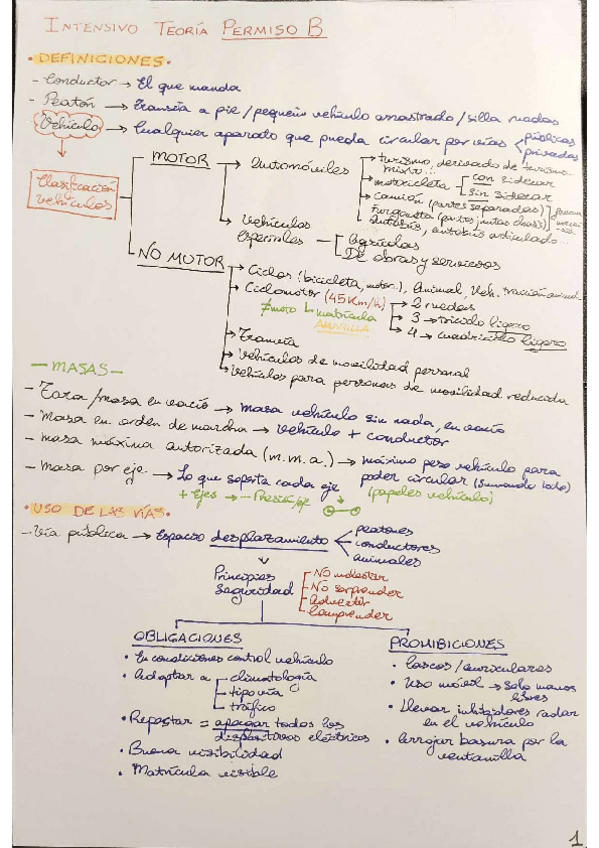 INTENSIVO TEORÍA PERMISO B
• DEFINICIONES •
- Conductor → El que manda
- Peatón → Transita a pie / pequeño vehículo arrastrado / silla ruedas
Vehículo → Cualquier aparato que pueda circular por vías públicas
privadas
Clasificación vehículos
MOTOR → Automóviles → turismo, derivado de turismo, mixto...
→ motocicleta con sidecar
sin sidecar
→ camión (partes separadas)
Furgoneta (partes juntas chasis)
autobús, autobús articulado...
→ Vehículos especiales Agrícolas
De obras y servicios
NO MOTOR → Ciclos (bicicleta, motor.), Animal, Veh. tracción animal
→ Ciclomotor (45 Km/h) → 2 ruedas
≠ moto ↳ matrícula AMARILLA
→ 3 → triciclo ligero
→ 4 → cuadriciclo ligero
→ Tranvía
→ Vehículos de movilidad personal
→ Vehículos para personas de movilidad reducida
- MASAS -
- Tara / masa en vacío → masa vehículo sin nada, en vacío
- Masa en orden de marcha → vehículo + conductor
- masa máxima autorizada (m.m.a.) → máximo peso vehículo para
poder circular (sumando todo)
(papeles vehículo)
- Masa por eje. → Lo que soporta cada eje
+ Ejes → - Presión/eje
• USO DE LAS VÍAS •
- Vía pública → Espacio desplazamiento peatones
conductores
animales
Principios seguridad
NO molestar
NO sorprender
Advertir
Comprender
OBLIGACIONES
• En condiciones control vehículo
• Adaptar a climatología
tipo vía
tráfico
• Repostar = apagar todos los
dispositivos eléctricos
• Buena visibilidad
• Matrícula visible
PROHIBICIONES
• Cascos / auriculares
• Uso móvil → solo manos
libres
• Llevar inhibidores radar
en el vehículo
• Arrojar basura por la
ventanilla
1